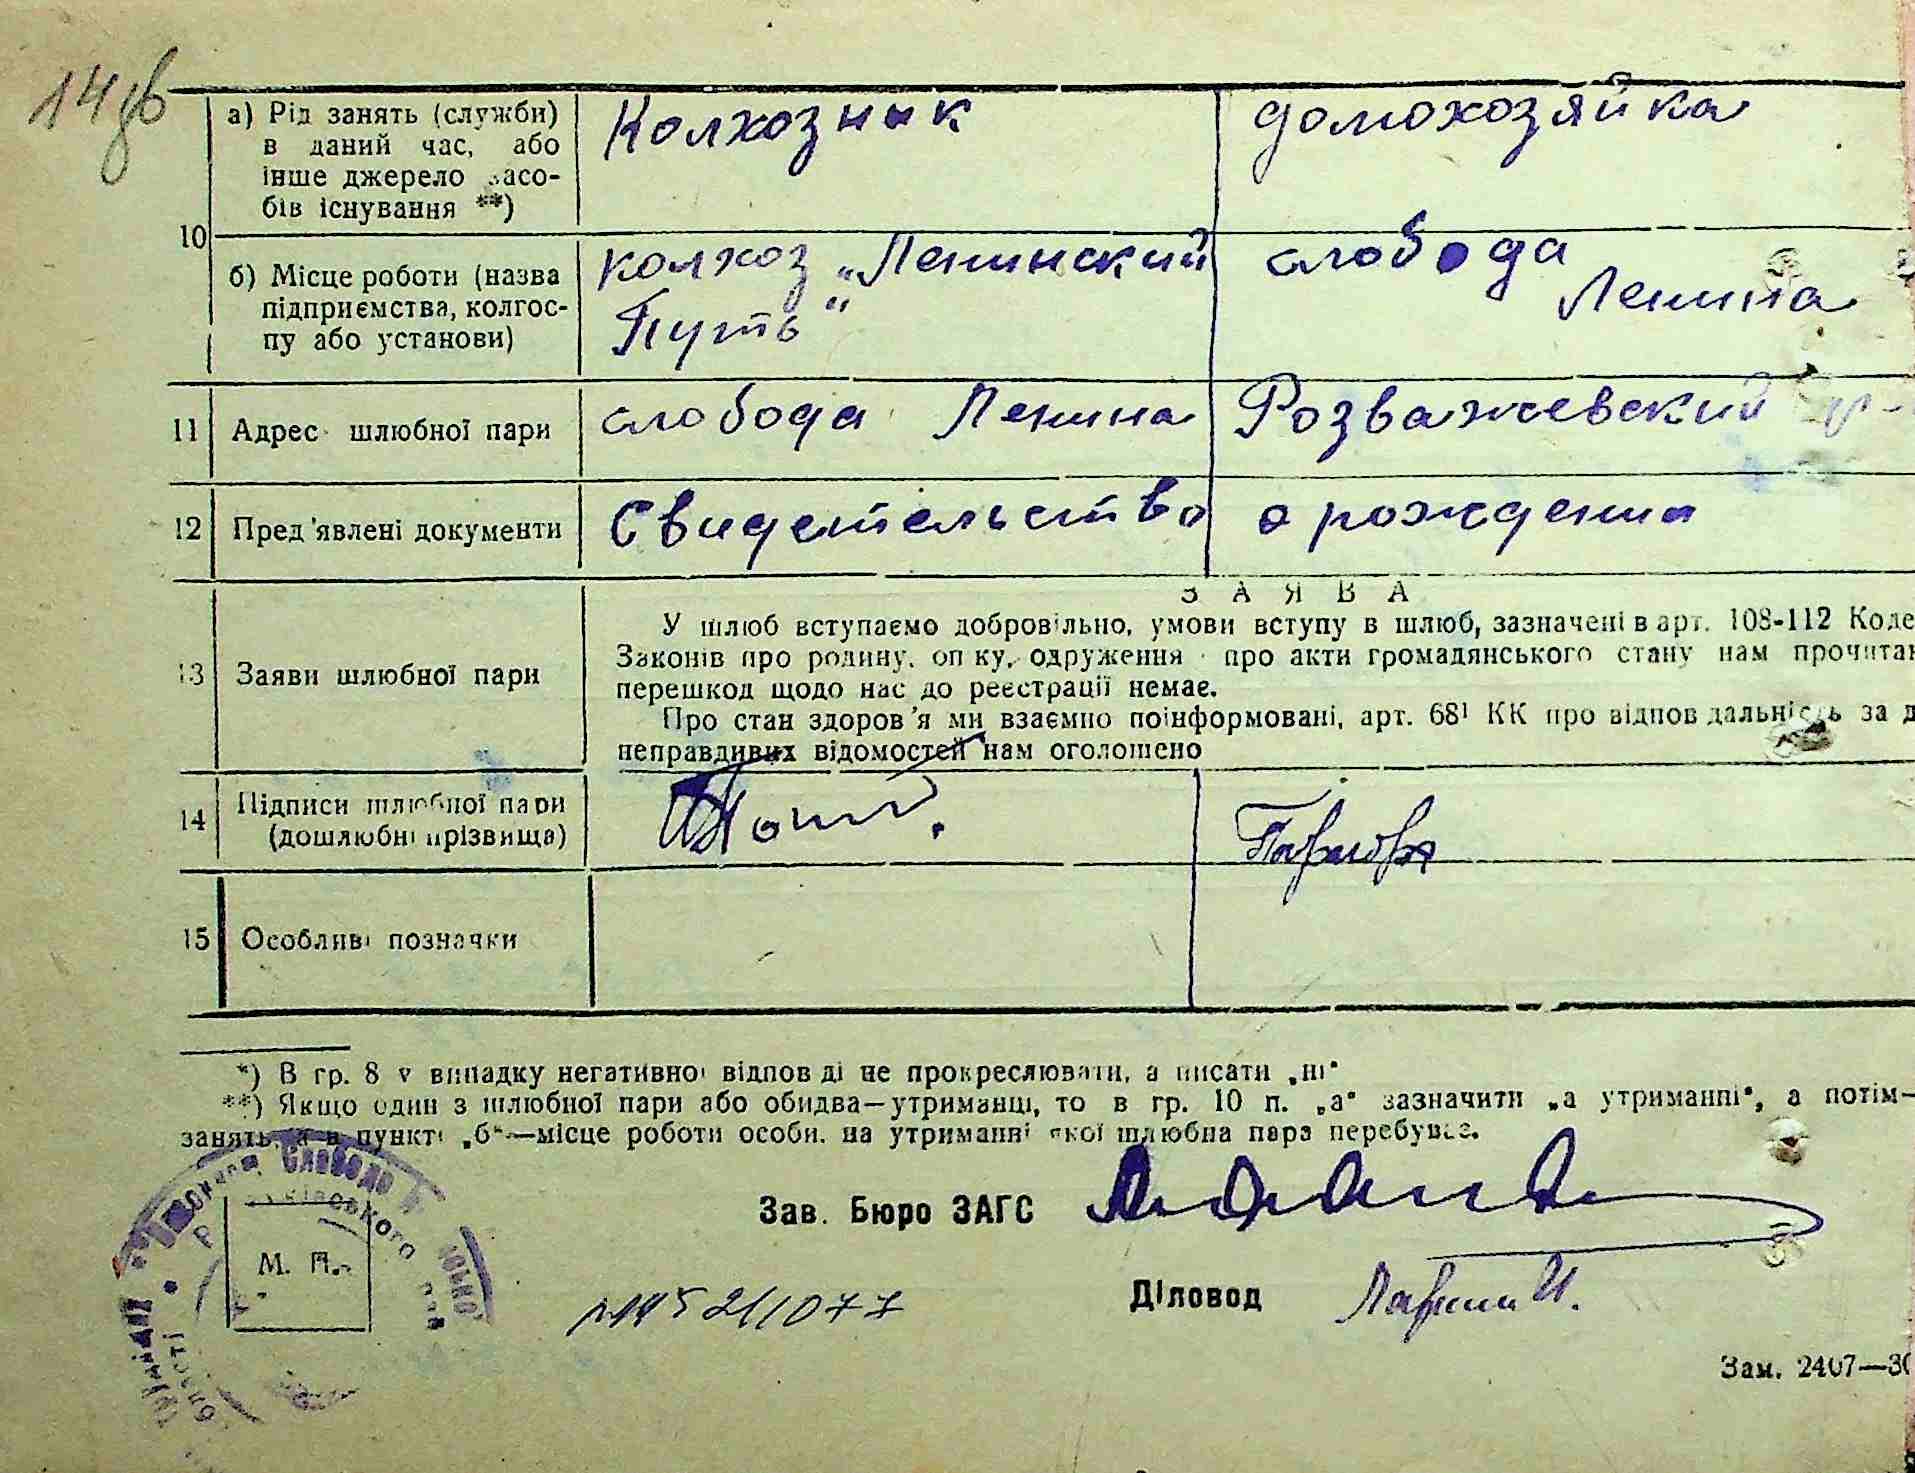 14зв
10
а) Рід занять (служби) в даний час, або інше джерело засобів існування **)
Колхозник
домохозяйка
б) Місце роботи (назва підприємства, колгоспу або установи)
колхоз „Ленинский Путь"
слобода Ленина
11 Адрес шлюбної пари
слобода Ленина Розважевский р-
12 Пред'явлені документи
Свидетельство о рождении
13 Заяви шлюбної пари
ЗАЯВА
У шлюб вступаємо добровільно, умови вступу в шлюб, зазначені в арт. 108-112 Коде
Законів про родину, опіку, одруження про акти громадянського стану нам прочитан
перешкод щодо нас до реєстрації немає.
Про стан здоров'я ми взаємно поінформовані, арт. 68¹ КК про відповідальність за д
неправдивих відомостей нам оголошено
14 Підписи шлюбної пари (дошлюбні прізвища)
15 Особливі позначки
*) В гр. 8 у випадку негативної відповіді не прокреслювати, а писати „ні"
**) Якщо один з шлюбної пари або обидва—утриманці, то в гр. 10 п. „а" зазначити „а утриманні", а потім—
занять, а в пункті „б"—місце роботи особи, на утриманні якої шлюбна пара перебуває.
М. П.
Зав. Бюро ЗАГС
Діловод
Зам. 2407—30